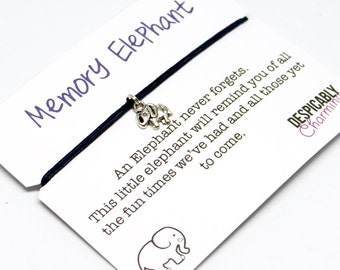 Memory Elephant
An Elephant never forgets.
This little elephant will remind you of all
the fun times we've had and all those yet
to come.
DESPICABLY
Charming